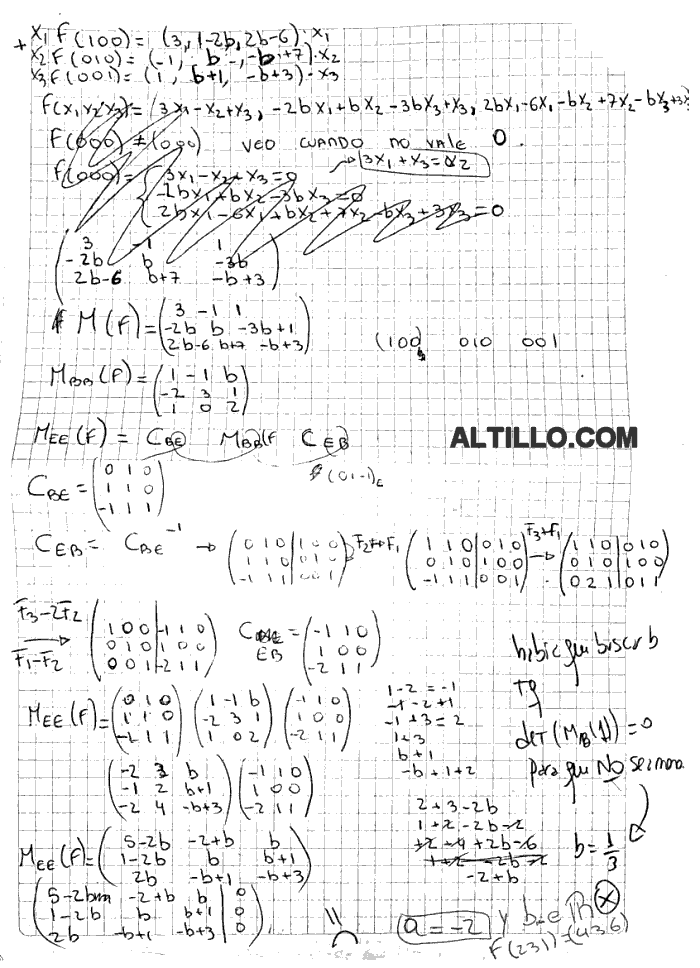 + x₁ F(100) = (3, 1-2b, 2b-6)·x₁
x₂ F(010) = (-1, b, -b+7)·x₂
x₃ F(001) = (1, b+1, -b+3)·x₃
F(x₁x₂x₃) = (3x₁-x₂+x₃, -2bx₁+bx₂-3bx₃+x₃, 2bx₁-6x₁-bx₂+7x₂-bx₃+3x₃)
F(000) ≠ (000) VEO CUANDO NO VALE 0.
→ 3x₁+x₃=x₂
F(000) = { 3x₁-x₂+x₃=0
-2bx₁+bx₂-3bx₃=0
2bx₁-6x₁+bx₂+7x₂-bx₃+3x₃=0
( 3 -1 1
-2b b -3b
2b-6 b+7 -b+3 )
M(F) = ( 3 -1 1
-2b b -3b+1
2b-6 b+7 -b+3 )
(100) 010 001
M_BB(F) = ( 1 -1 b
-2 3 1
1 0 2 )
M_EE(F) = C_BE M_BB(F C_EB)
ALTILLO.COM
(01-1)_E
C_BE = ( 0 1 0
1 1 0
-1 1 1 )
C_EB = C_BE⁻¹ → ( 0 1 0 | 1 0 0
1 1 0 | 0 1 0
-1 1 1 | 0 0 1 ) F₂↔F₁ ( 1 1 0 | 0 1 0
0 1 0 | 1 0 0
-1 1 1 | 0 0 1 ) F₃+F₁ → ( 1 1 0 | 0 1 0
0 1 0 | 1 0 0
0 2 1 | 0 1 1 )
F₃-2F₂
F₁-F₂ → ( 1 0 0 | -1 1 0
0 1 0 | 1 0 0
0 0 1 | -2 1 1 )
C EB = ( -1 1 0
1 0 0
-2 1 1 )
había que buscar b
tq
det(M_B(f))=0
para que NO sea mono.
b=1/3
M_EE(F) = ( 0 1 0
1 1 0
-1 1 1 ) ( 1 -1 b
-2 3 1
1 0 2 ) ( -1 1 0
1 0 0
-2 1 1 )
1-2=-1
-1-2+1
-1+3=2
1+3
b+1
-b+1+2
( -2 3 b
-1 2 b+1
-2 4 -b+3 ) ( -1 1 0
1 0 0
-2 1 1 )
2+3-2b
1+2-2b-2
+2+4+2b-6
1+2-2b-2
-2+b
M_EE(F) = ( 5-2b -2+b b
1-2b b b+1
2b -b+1 -b+3 )
( 5-2b -2+b b | 0
1-2b b b+1 | 0
2b -b+1 -b+3 | 0 )
a=-2 y b∈ℝ
F(231)=(436)